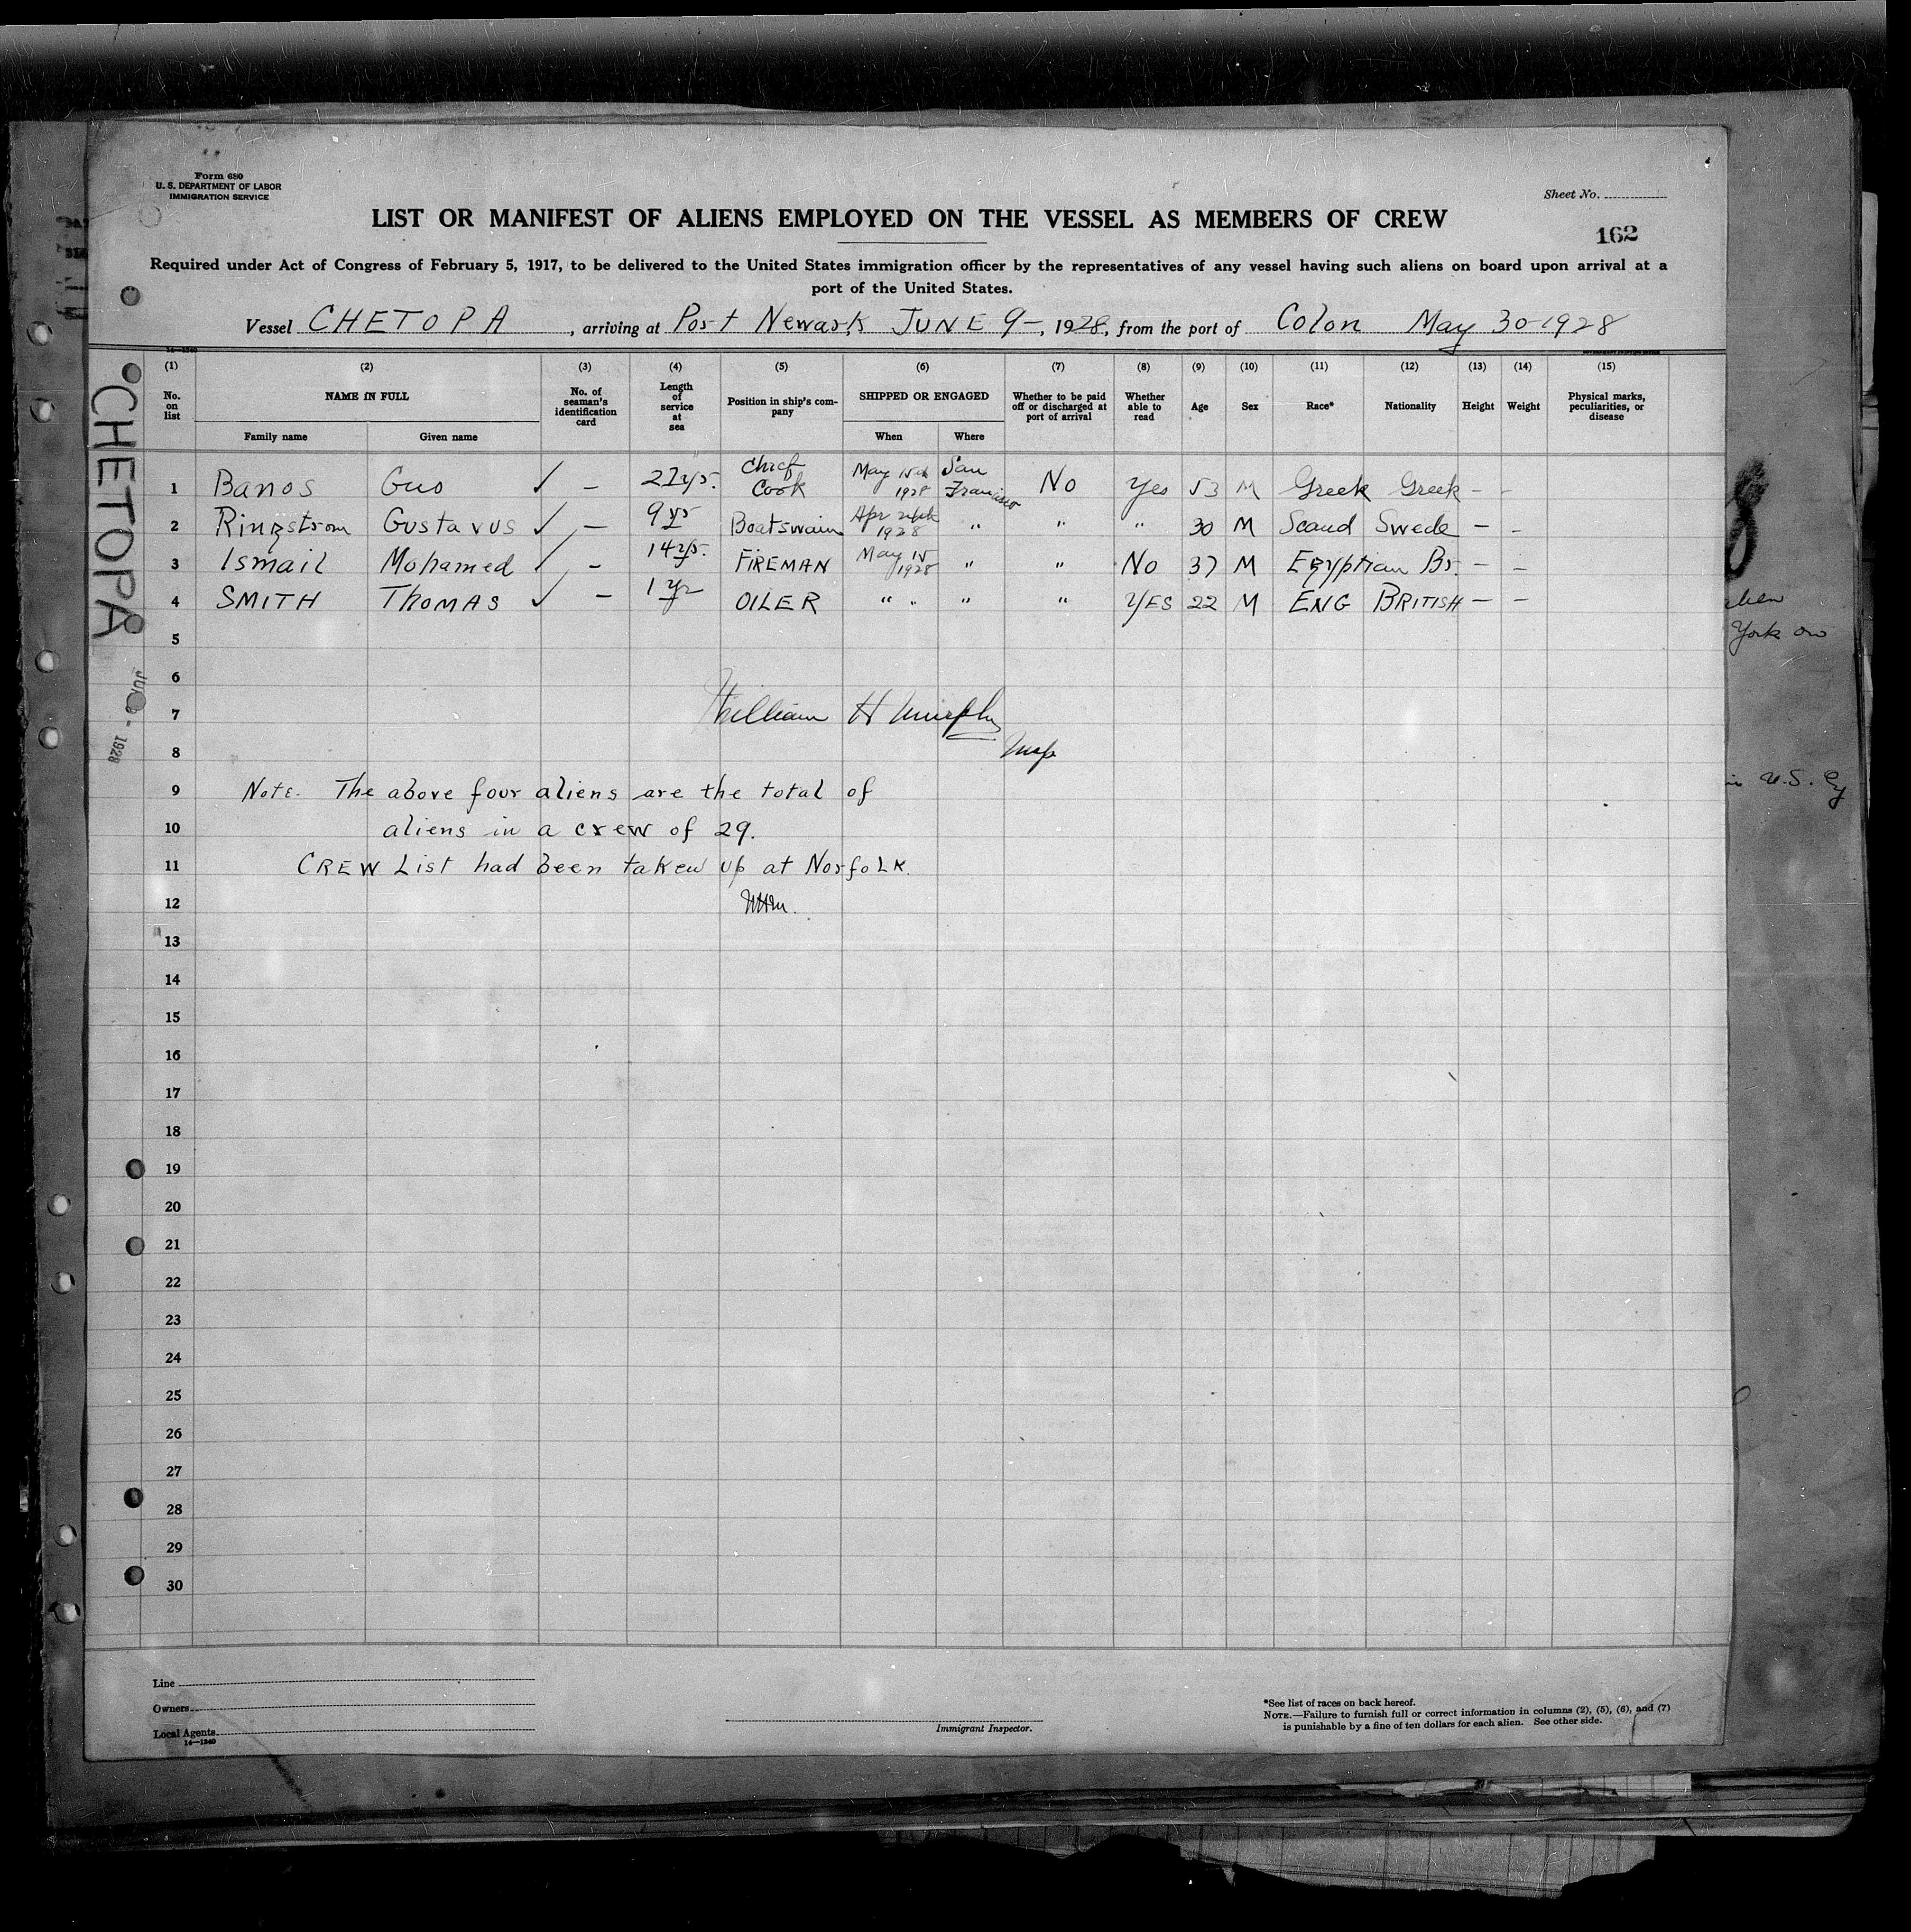 Form 680
U. S. DEPARTMENT OF LABOR
IMMIGRATION SERVICE
Sheet No.
LIST OR MANIFEST OF ALIENS EMPLOYED ON THE VESSEL AS MEMBERS OF CREW
162
Required under Act of Congress of February 5, 1917, to be delivered to the United States immigration officer by the representatives of any vessel having such aliens on board upon arrival at a
port of the United States.
Vessel CHETOPA, arriving at Port Newark JUNE 9-, 1928, from the port of Colon May 30-1928
(1) (2) (3) (4) (5) (6) (7) (8) (9) (10) (11) (12) (13) (14) (15)
No. on list NAME IN FULL No. of seaman's identification card Length of service at sea Position in ship's company SHIPPED OR ENGAGED Whether to be paid off or discharged at port of arrival Whether able to read Age Sex Race* Nationality Height Weight Physical marks, peculiarities, or disease
Family name Given name When Where
1 Banos Gus ✓ – yrs. Chief Cook May 15th 1928 San Francisco No Yes 53 M Greek Greek - -
2 Ringstrom Gustavus ✓ – 9 yrs Boatswain Apr 1928 " " " 30 M Scand Swede – -
3 Ismail Mohamed ✓ – 14 yrs. FIREMAN May 15 1928 " " No 37 M Egyptian Br. – –
4 SMITH THOMAS ✓ – 1 yr OILER " " " " YES 22 M ENG BRITISH – –
5
6
7 William H Murphy
8
9 Note. The above four aliens are the total of
10 aliens in a crew of 29.
11 CREW List had been taken up at NorfoLK.
12 WHM.
13
14
15
16
17
18
19
20
21
22
23
24
25
26
27
28
29
30
CHETOPA
1928
York on
U.S.
Line
Owners
Local Agents
14—1240
Immigrant Inspector.
*See list of races on back hereof.
NOTE.—Failure to furnish full or correct information in columns (2), (5), (6), and (7)
is punishable by a fine of ten dollars for each alien. See other side.